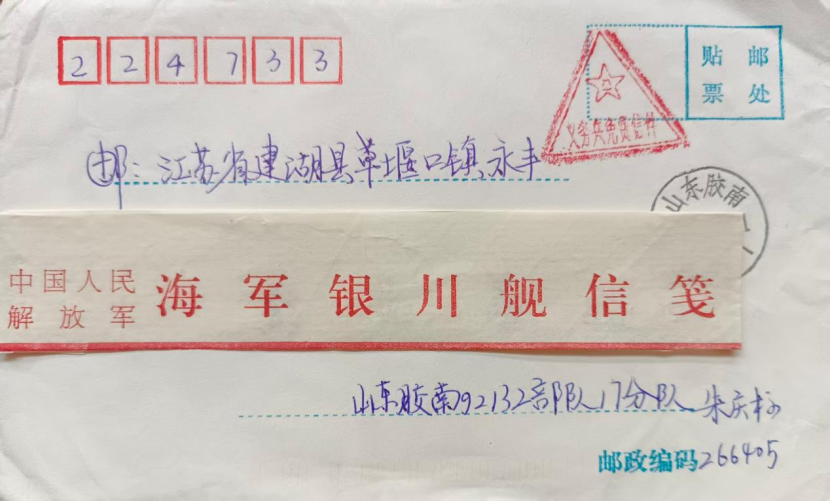 224733
贴 邮
票 处
义务兵免费信件
邮:江苏省建湖县草堰口镇永丰
山东胶南
中国人民
解放军
海军银川舰信笺
山东胶南92132部队17分队 朱庆
邮政编码266405